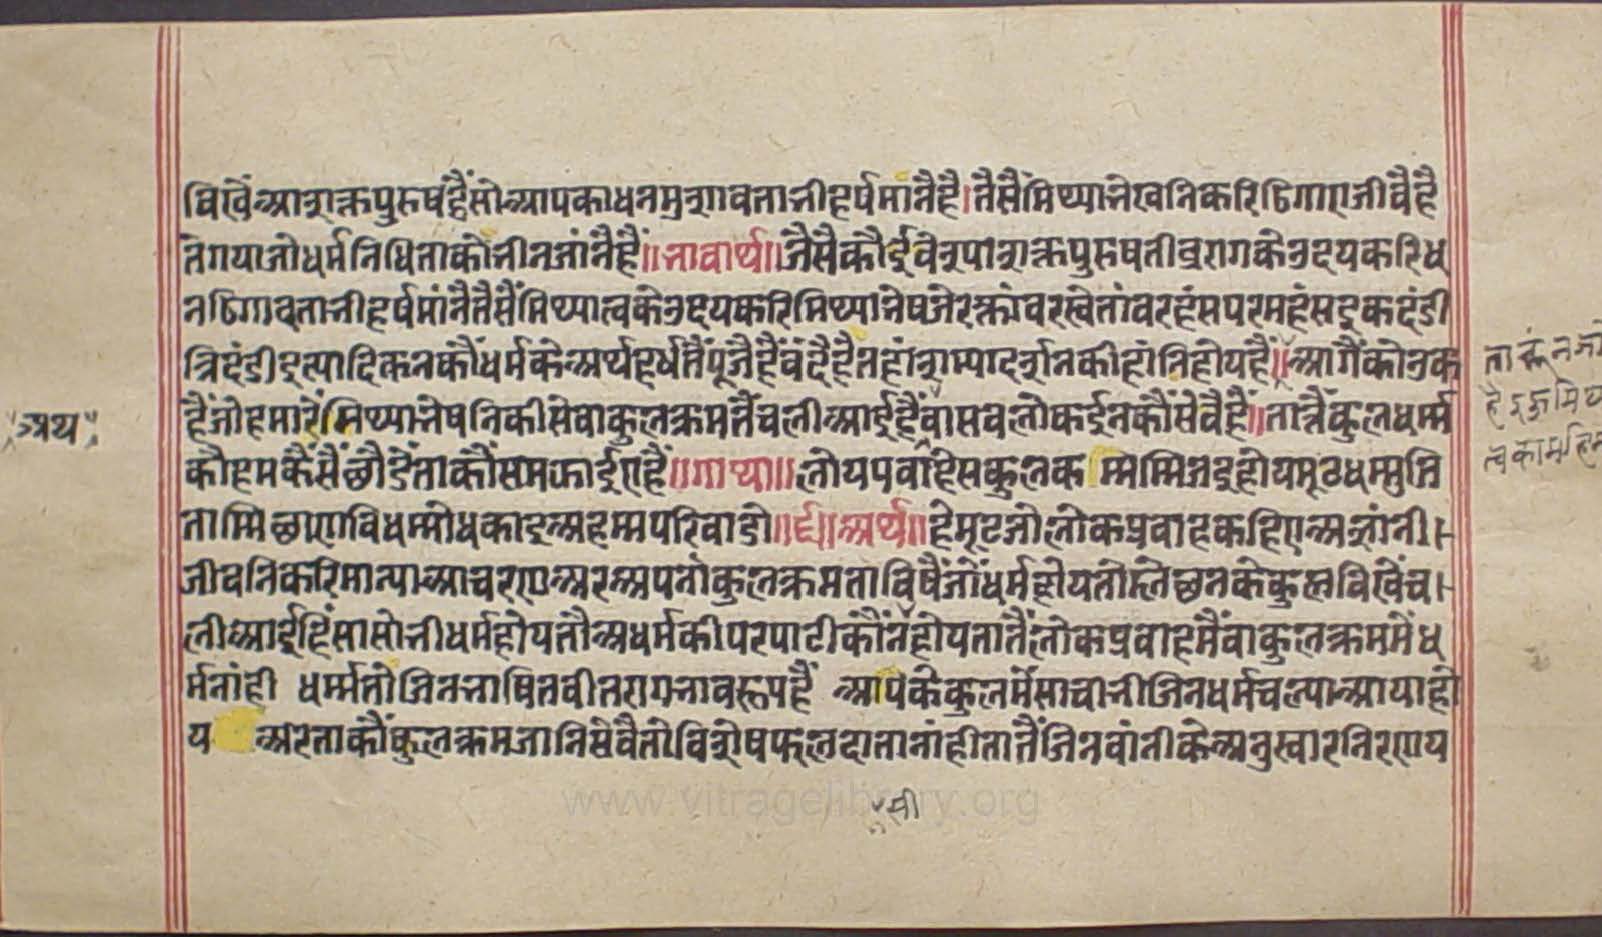 विखैं आशक्त पुरुष हैं सो आपका धन मुशावता भी हर्ष मांनै है। तैसैं मिथ्याभेखनि करि ठिगाए जीवै है
ते गया जो धर्मनिधि ताकों भी न जांनै हैं॥भावार्थ॥जैसै कौई वेश्पाशक्त पुरुष तीव्र राग के उदय करि ध
न ठिगावता भी हर्ष मांनै तैसैं मिथ्यात्व के उदय करि मिथ्याभेष जे रक्तांवर स्वेतांवर हंस परमहंस इकदंडी
त्रिदंडी इत्यादिकनकौं धर्म के अर्थ हर्ष तैं पूजै हैं वंदै है न हां शम्यादर्शन की हांनि होय हैं॥आगैं को उक
हैं जो हमारे मिथ्याभेषनि की सेवा कुलक्रम तैं चली आई हैं वा सव लोक ईनकौं सेवै हैं॥तातैं कुलधर्म्म
कौ हम कैसैं छौडें ताकौं समझाई ए हैं॥गाथा॥लोयपवाहे सकुलक म्मम्मि जइ होय मूठ धम्मुत्ति
ता मिछाण वि धम्मो धकाइ अहम्मपरिवाडो॥६॥अर्थ॥हे मूट जो लोकप्रवाह कहिए अज्ञांनी
जीवनि करि मान्या आचरण अर अपनां कुलक्रम ता विषैं जों धर्म होय तो म्लेछन के कुल विखें च
ली आई हिंसा सो भी धर्म होय तौ अधर्म की परपाटी कौंन होय तातैं लोकप्रवाह मैं वा कुलक्रम में ध
र्म नांही धर्म्म तो जिनभाषित वीतरागभावरूप है आपके कुल में साचा भी जिनधर्म चल्या आया हो
य अर ताकौं कुलक्रम जानि सेवै तो विशेष फलदाता नांही तातैं जिनवांनी के अनुस्वार निरणय
अथ
ताकूं न जो
है इह मिथ्या
त्व का महिमा
सी
www.vitragelibrary.org